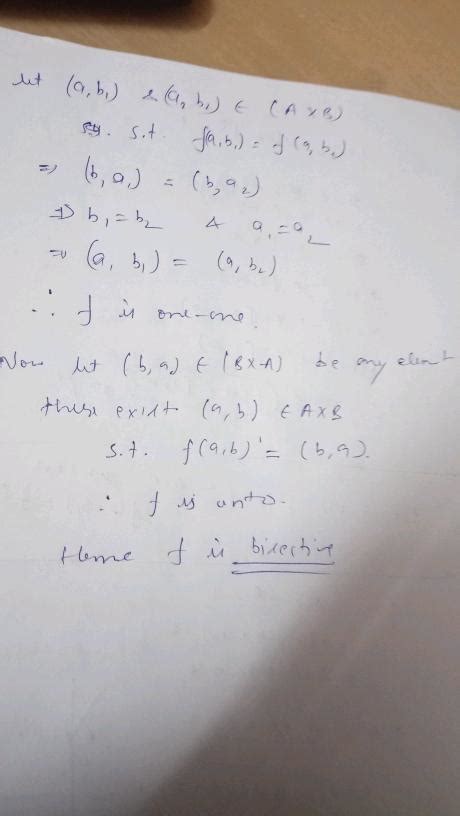 let (a, b₁) & (a₂ b₁) ∈ (A × B)
s.t. f(a, b₁) = f(a, b₂)
⇒ (b, a₁) = (b, a₂)
⇒ b₁ = b₂ & a₁ = a₂
⇒ (a, b₁) = (a, b₂)
∴ f is one-one.
Now let (b, a) ∈ (B × A) be any element
there exist (a, b) ∈ A × B
s.t. f(a, b) = (b, a).
∴ f is onto.
Hence f is bijective